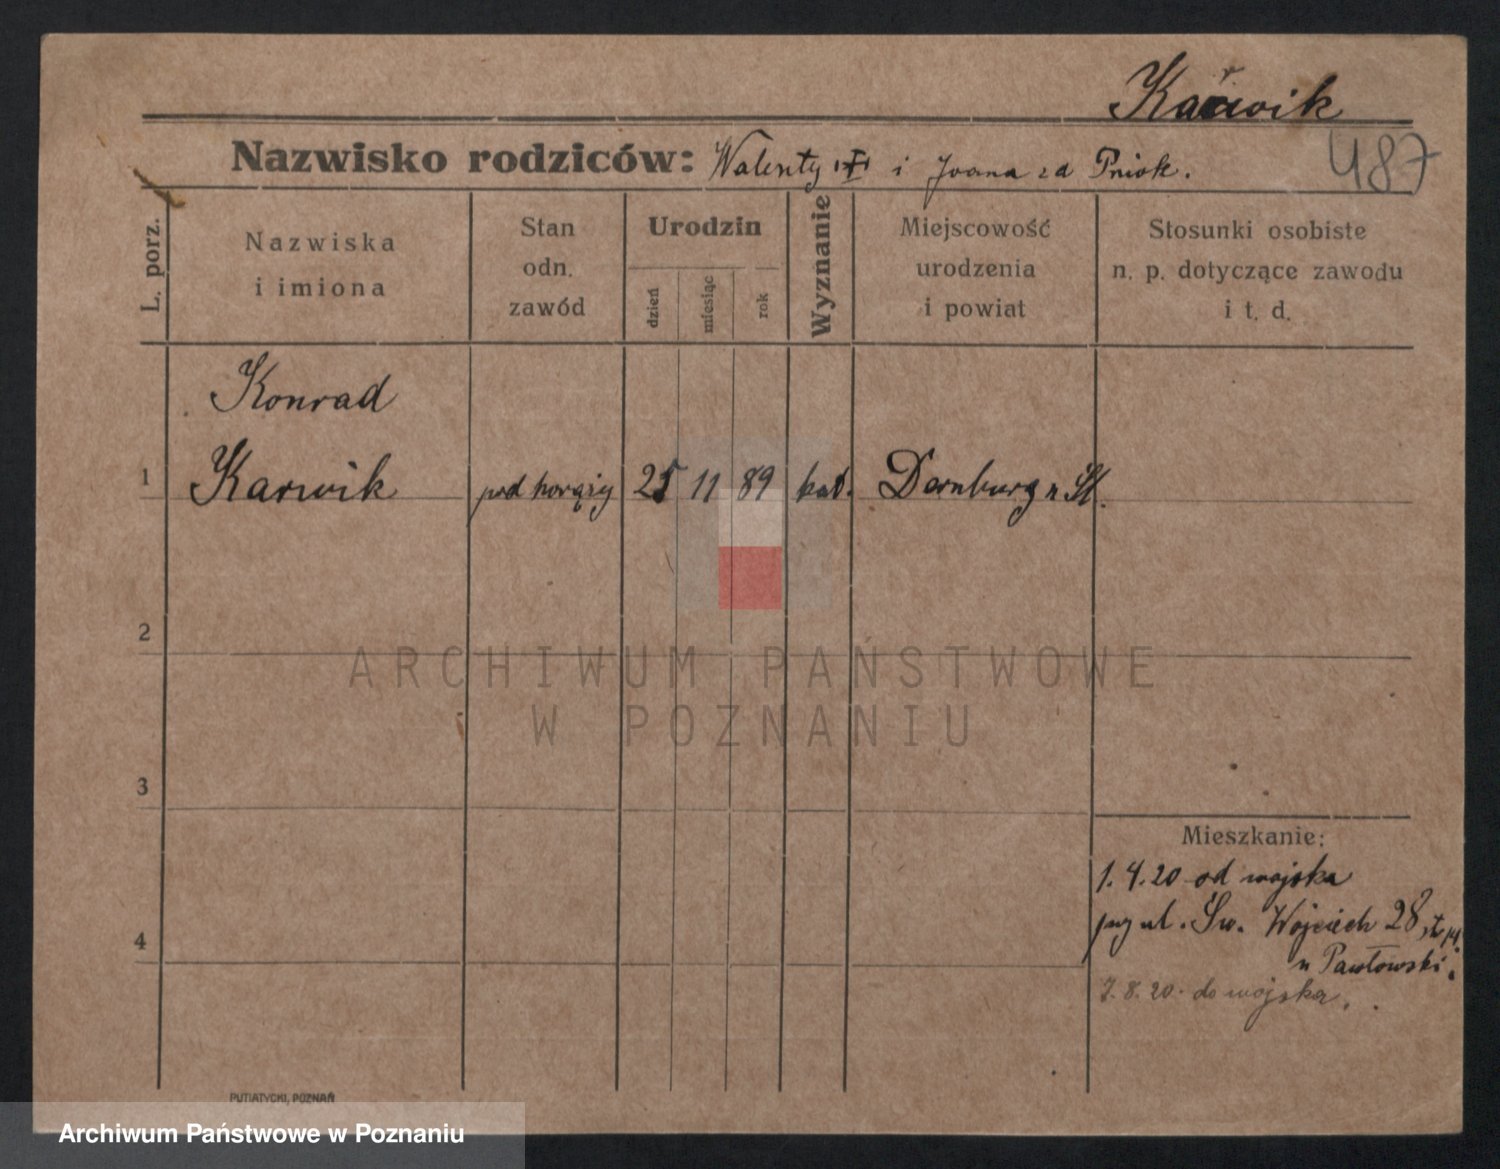 Karwik
487
Nazwisko rodziców: Walenty i Joana zd Pniok.
L. porz.
Nazwiska
i imiona
Stan
odn.
zawód
Urodzin
dzień
miesiąc
rok
Wyznanie
Miejscowość
urodzenia
i powiat
Stosunki osobiste
n. p. dotyczące zawodu
i t. d.
Konrad
1 Karwik podhorąży 25 11 89 kat. Dornburg
2
ARCHIWUM PAŃSTWOWE
W POZNANIU
3
Mieszkanie:
1.4.20 od wojska
ul. Św. Wojciech 28
4
Pawłowski.
7.8.20. do wojska.
PUTIATYCKI, POZNAŃ
Archiwum Państwowe w Poznaniu